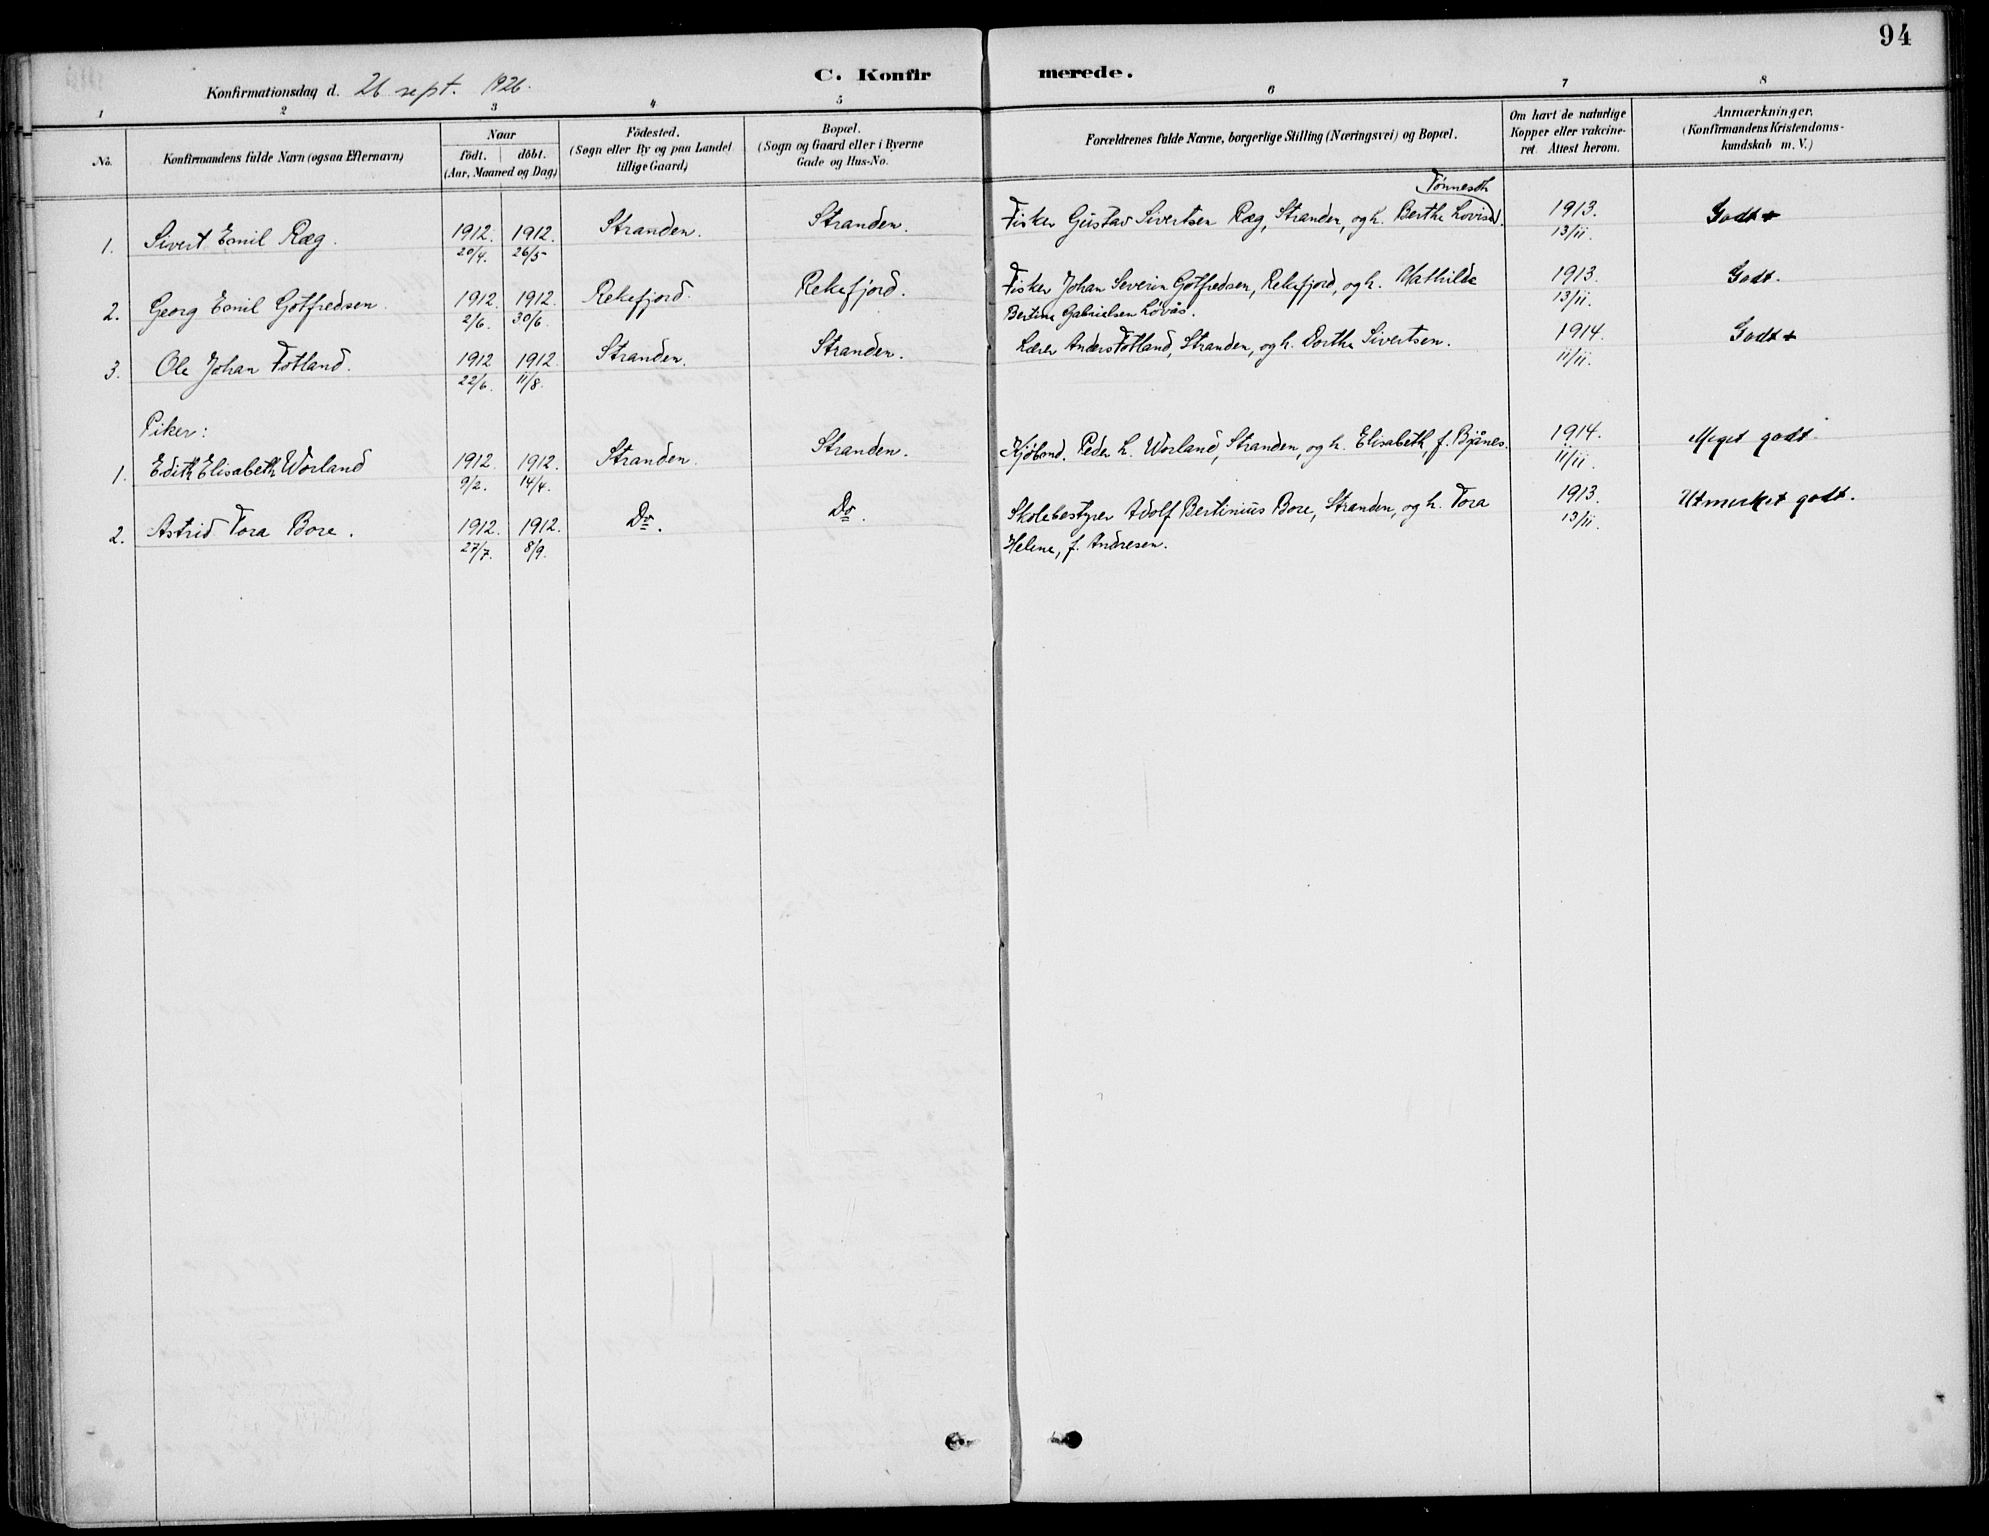 94
C. Konfirmerede.
Konfirmationsdag d. 26 sept. 1926.
1 2 3 4 5 6 7 8
No. Konfirmandens fulde Navn (ogsaa Efternavn) Naar födt. döbt. (Aar, Maaned og Dag) Födested. (Sogn eller By og paa Landet tillige Gaard) Bopæl. (Sogn og Gaard eller i Byerne Gade og Hus-No. Forældrenes fulde Navne, borgerlige Stilling (Næringsvei) og Bopæl. Om havt de naturlige Kopper eller vakcineret. Attest herom. Anmærkninger. (Konfirmandens Kristendomskundskab m. V.)
Tønnesdt.
1. Sivert Emil Ræg. 1912. 20/4. 1912. 26/5 Stranden. Stranden. Fisker Gustav Sivertsen Ræg, Stranden, og h. Berthe Lovise 1913. 13/11. Godt +
2. Georg Emil Gotfredsen. 1912. 2/6. 1912. 30/6. Rekefjord. Rekefjord. Fisker Johan Severin Gotfredsen, Rekefjord, og h. Mathilde 1913. 13/11. Godt.
Bertine Gabrielsen Løvås.
3. Ole Johan Fotland. 1912 22/6. 1912. 11/8. Stranden. Stranden. Lærer Anders Fotland, Stranden, og h. Dorthe Sivertsen. 1914. 11/11. Godt +
Piker:
1. Edith Elisabeth Worland 1912. 9/2. 1912. 14/4. Stranden. Stranden. Kjøbmd. Peder L. Worland, Stranden, og h. Elisabeth, f. Bjånes. 1914. 11/11. Meget godt.
2. Astrid Tora Bore. 1912. 27/7. 1912. 8/9. Do. Do. Skolebestyrer Adolf Bertinius Bore, Stranden, og h. Tora 1913. 13/11. Utmerket godt.
Helene, f. Andresen.